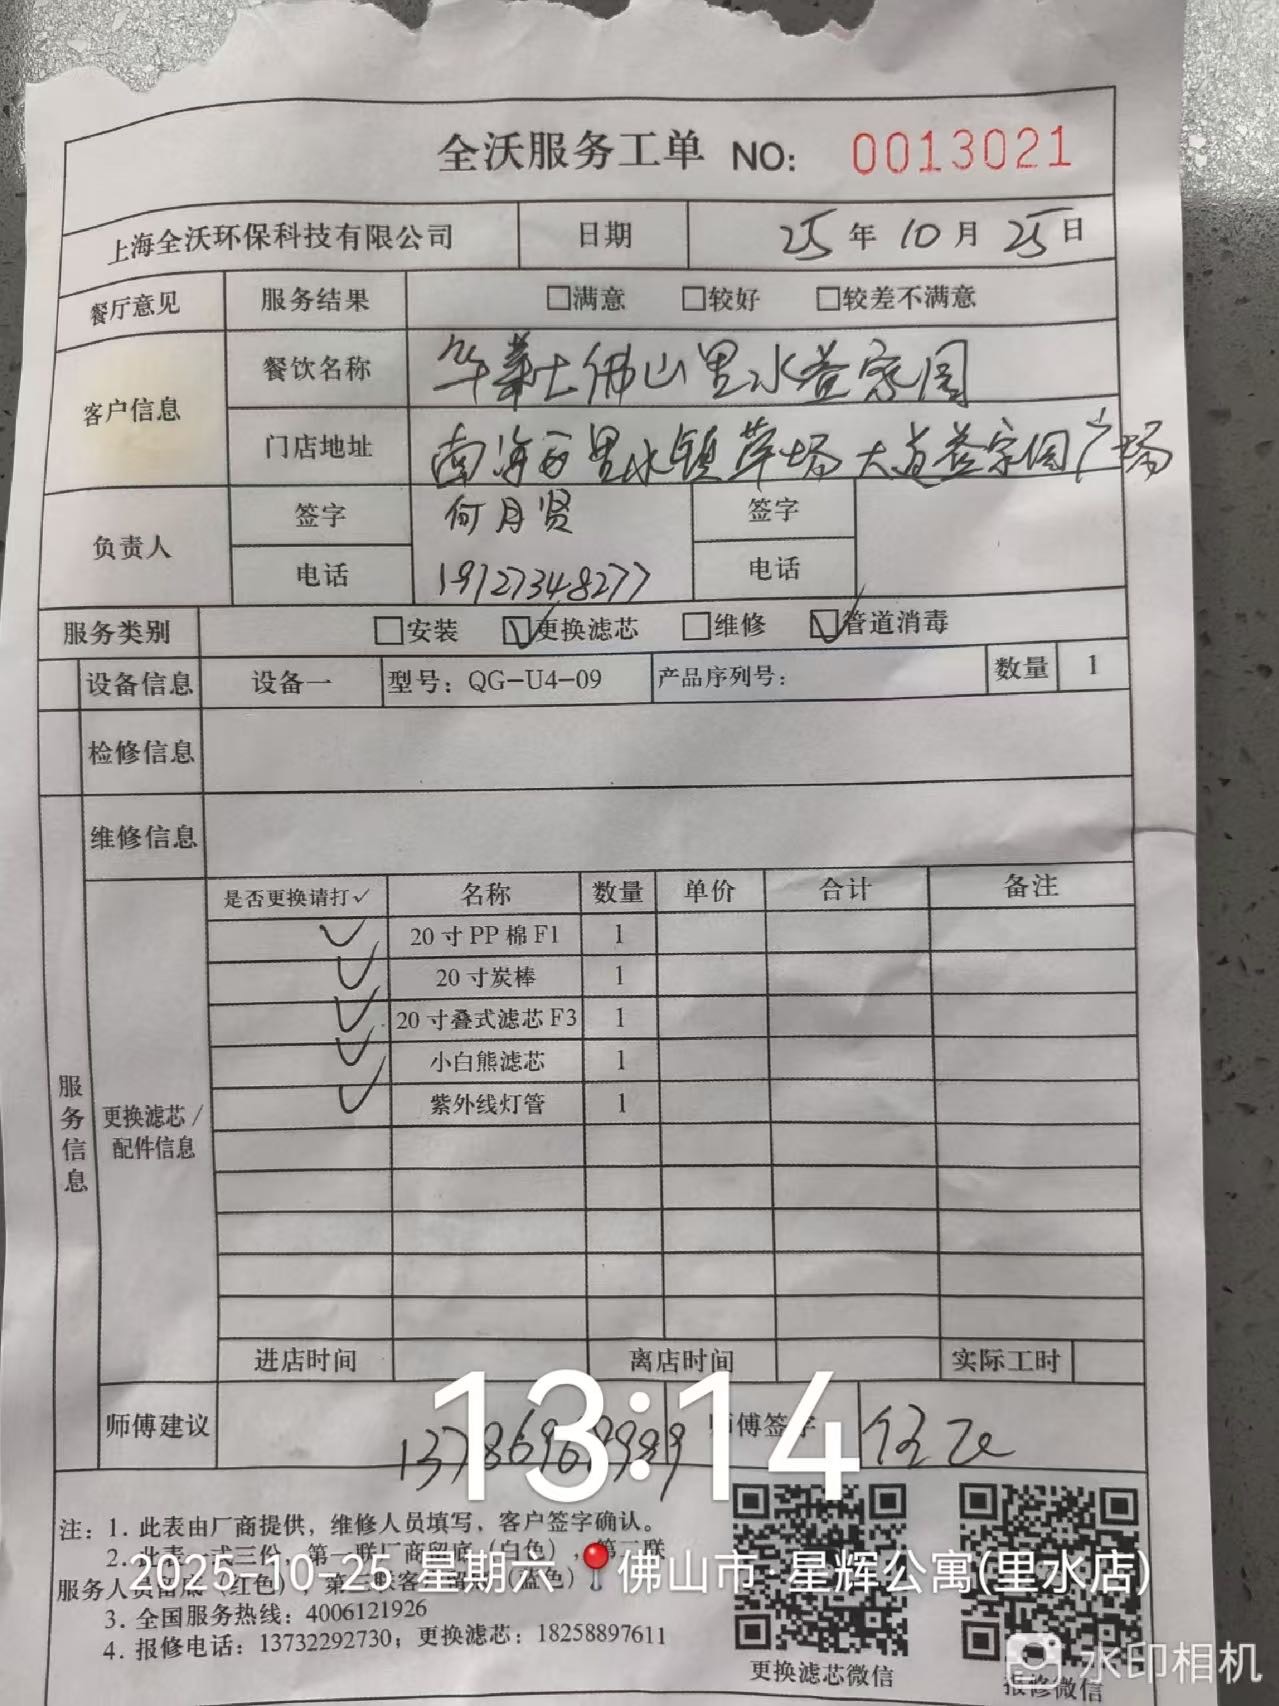 全沃服务工单 NO: 0013021
上海全沃环保科技有限公司 日期 25年10月25日
餐厅意见 服务结果 □满意 □较好 □较差不满意
客户信息 餐饮名称 华莱士佛山里水益家园
门店地址 南海区里水镇草场大道益家园广场
负责人 签字 何月贤 签字
电话 19127348277 电话
服务类别 □安装 ☑更换滤芯 □维修 ☑管道消毒
设备信息 设备一 型号：QG-U4-09 产品序列号： 数量 1
检修信息
维修信息
是否更换请打✓ 名称 数量 单价 合计 备注
✓ 20寸PP棉F1 1
✓ 20寸炭棒 1
✓ 20寸叠式滤芯F3 1
✓ 小白熊滤芯 1
✓ 紫外线灯管 1
服务信息
更换滤芯/配件信息
进店时间 离店时间 实际工时
师傅建议 师傅签字
13:14
注：1. 此表由厂商提供，维修人员填写、客户签字确认。
2. 此表一式三份，第一联厂商留底（白色），第二联
服务人员留底（红色），第三联客户留底（蓝色）
2025-10-25 星期六 佛山市·星辉公寓(里水店)
3. 全国服务热线：4006121926
4. 报修电话：13732292730；更换滤芯：18258897611
更换滤芯微信 报修微信
水印相机